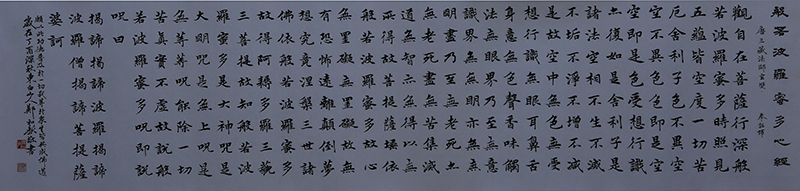 般若波羅蜜多心經
唐三藏法師玄奘 奉敕譯
觀自在菩薩行深般
若波羅蜜多時照見
五蘊皆空度一切苦
厄舍利子色不異空
空不異色色即是空
空即是色受想行識
亦復如是舍利子是
諸法空相不生不滅
不垢不淨不增不減
是故空中無色無受
想行識無眼耳鼻舌
身意無色聲香味觸
法無眼界乃至無意
識界無無明亦無無
明盡乃至無老死亦
無老死盡無苦集滅
道無智亦無得以無
所得故菩提薩埵依
般若波羅蜜多故心
無罣礙無罣礙故無
有恐怖遠離顛倒夢
想究竟涅槃三世諸
佛依般若波羅蜜多
故得阿耨多羅三藐
三菩提故知般若波
羅蜜多是大神呪是
大明呪是無上呪是
無等等呪能除一切
苦真實不虛故說般
若波羅蜜多呪即說
呪曰
揭諦揭諦波羅揭諦
波羅僧揭諦菩提薩
婆訶
願以此功德普及於一切我等與眾生皆共成佛道
歲在丁酉深秋東白山人鄭敬書